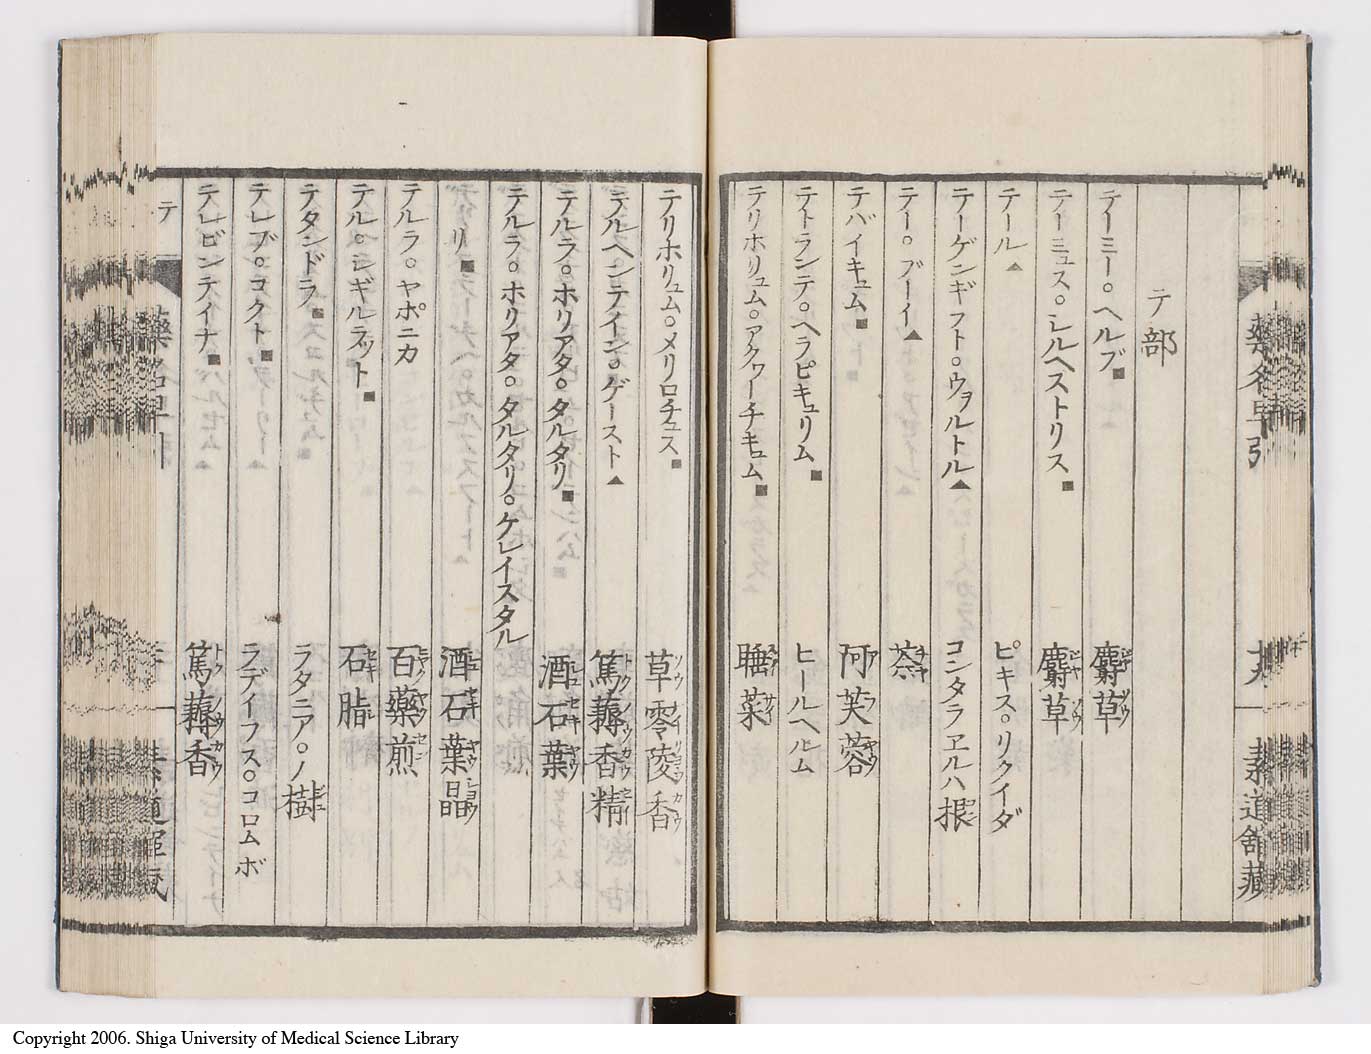 テ部
テーミー。ヘルブ■ 麝草
テーミュス。シルヘストリス■ 麝草
テール▲ ピキス。リクイダ
テーゲンギフト。ウヲルトル▲ コンタラヱルハ根
テー。ブーイ▲ 茶
テバイキュム■ 阿芙蓉
テトランテ。ヘラピキュリム■ ヒールヘルム
テリホリュム。アクワーチキュム■ 睡菜
テリホリュム。メリロチュス■ 草零陵香
テルヘンテイン。ゲースト▲ 篤耨香精
テルラ。ホリアタ。タルタリ■ 酒石葉
テルラ。ホリアタ。タルタリ。ケレイスタル
リリ■ 酒石葉晶
テルラ。ヤポニカ 百藥煎
テルラ。シギルラット■ 石脂
テタンドラ■ ラタニア。ノ樹
テレブ。コクト■ ラデイフス。コロムボ
テレビンテイナ■ 篤耨香
テ
Copyright 2006. Shiga University of Medical Science Library